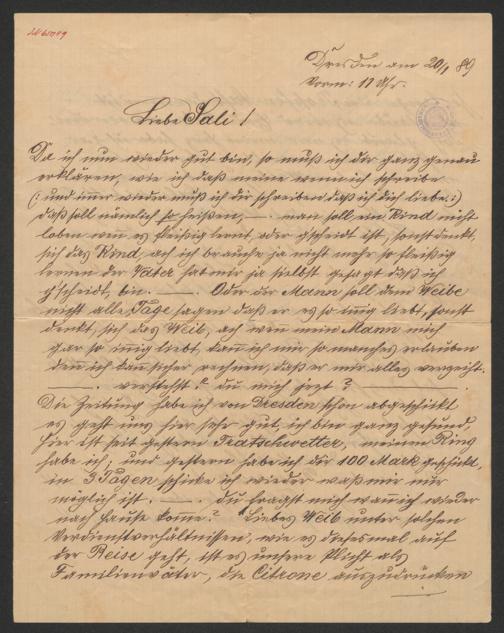 Dresden am 20/1 89
Vorm: 11 Uhr.
Liebe Sali!
Da ich nun wieder gut bin, so muß ich dir ganz genau
erklären, wie ich daß meine wenn ich schreibe
(: und immer wieder muß ich dir schreiben daß ich dich liebe :)
daß soll nämlich so heißen, —. man soll ein Kind nicht
loben wen es fleißig lernt, oder gscheidt ist, sonst denkt
sich das Kind, ach ich brauche ja nicht mehr so fleißig
lernen der Vater hat mir ja selbst gesagt daß ich
gscheidt, bin. —. Oder der Mann soll dem Weibe
nicht alle Tage sagen daß er es so innig liebt, sonst
denkt, sich das Weib, ach wen mein Mann mich
gar so innig liebt, kan ich mir so manches erlauben
den ich kan sicher rechnen, daß er mir alles verzeiht.
—. verstehst du mich jezt? —.
Die Zeitung habe ich von Dresden schon abgeschickt
es geht uns hier sehr gut, ich bin ganz gesund,
hier ist seit gestern Tratschwetter, meinen Ring
habe ich; und gestern habe ich dir 100 Mark geschickt,
in 3 Tagen schicke ich wieder waß mir nur
möglich ist. —. du fragst mich wann ich wieder
nach Hause kome? Liebes Weib unter solchen
Verdienstverhältnissen, wie es diesesmal auf
der Reise geht, ist es unsere Pflicht als
Familienväter, die Citrone auszudrücken